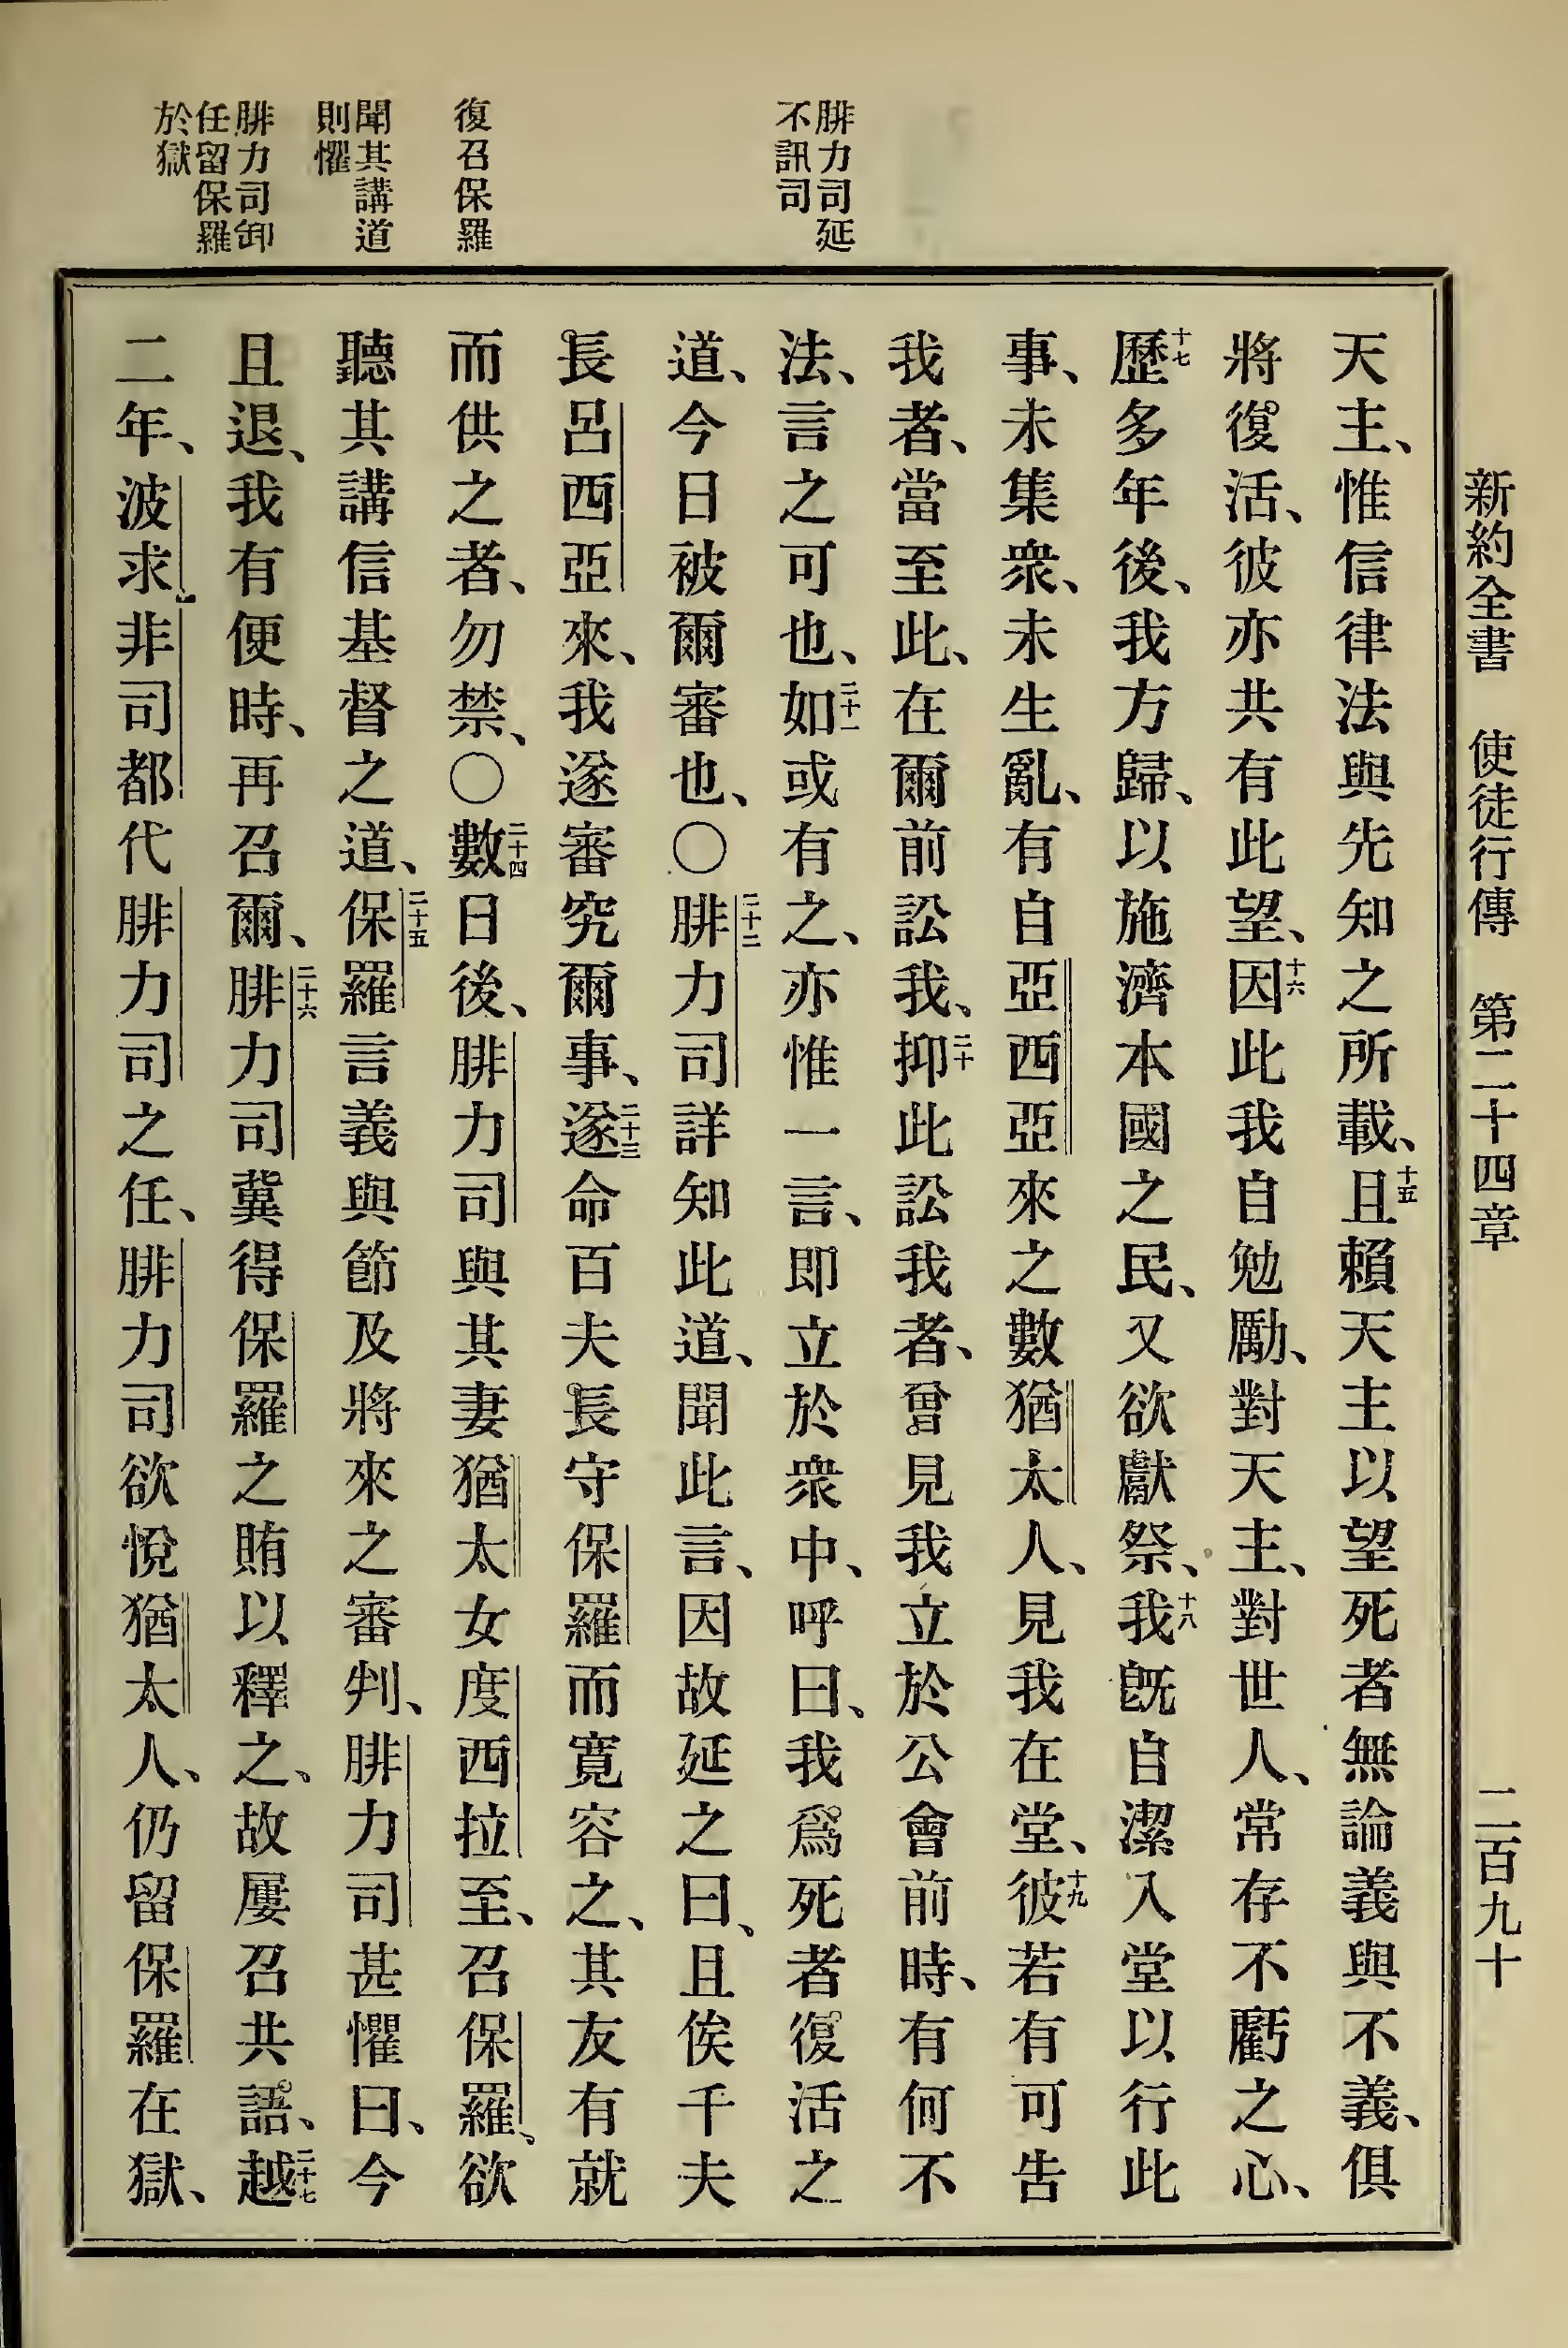 新約全書 使徒行傳 第二十四章 二百九十
腓力司延
不訊司
復召保羅
聞其講道
則懼
腓力司卸
任留保羅
於獄
天主、惟信律法與先知之所載、十五且賴天主以望死者無論義與不義、俱
將復活、彼亦共有此望、十六因此我自勉勵、對天主、對世人、常存不虧之心、
十七歷多年後、我方歸、以施濟本國之民、又欲獻祭、十八我旣自潔入堂以行此
事、未集衆、未生亂、有自亞西亞來之數猶太人、見我在堂、十九彼若有可告
我者、當至此、在爾前訟我、二十抑此訟我者、曾見我立於公會前時、有何不
法、言之可也、二十一如或有之、亦惟一言、即立於衆中、呼曰、我爲死者復活之
道、今日被爾審也、〇二十二腓力司詳知此道、聞此言、因故延之曰、且俟千夫
長呂西亞來、我遂審究爾事、二十三遂命百夫長守保羅而寬容之、其友有就
而供之者、勿禁、〇二十四數日後、腓力司與其妻猶太女度西拉至、召保羅、欲
聽其講信基督之道、二十五保羅言義與節及將來之審判、腓力司甚懼曰、今
且退、我有便時、再召爾、二十六腓力司冀得保羅之賄以釋之、故屢召共語、二十七越
二年、波求非司都代腓力司之任、腓力司欲悅猶太人、仍留保羅在獄、